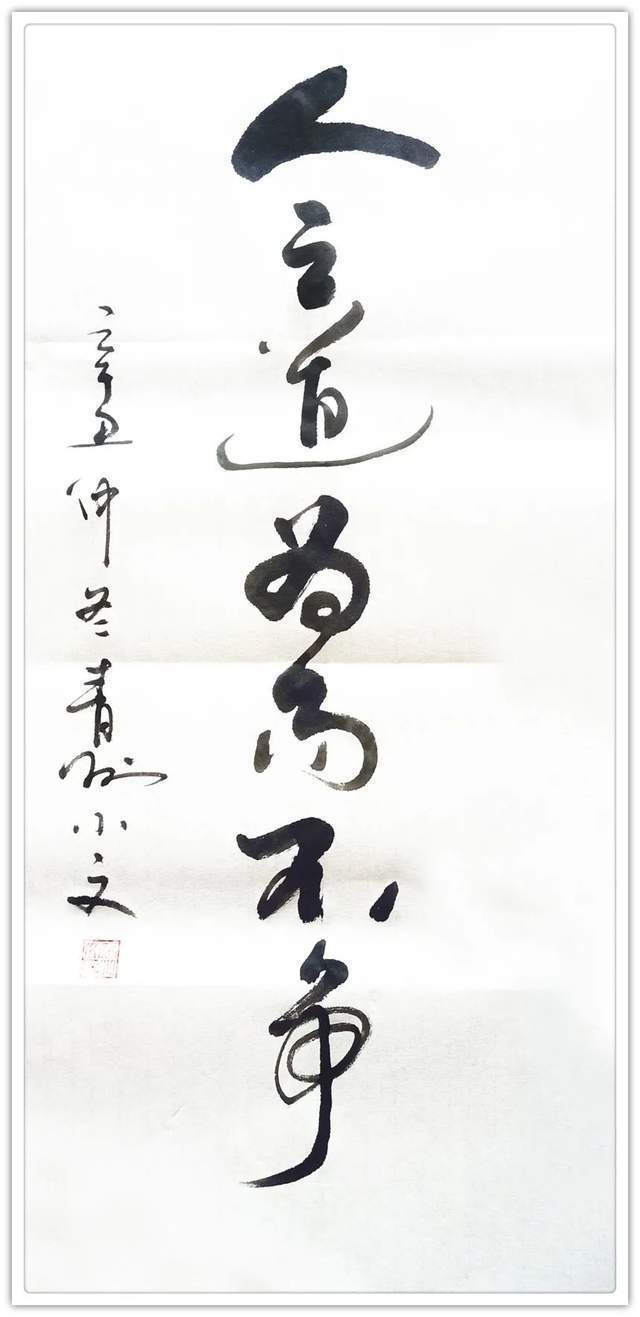 人之道为而不争
辛丑仲冬青州小文